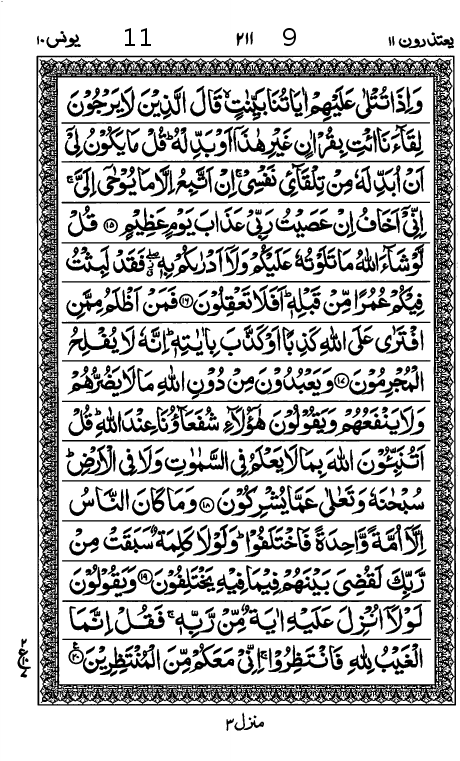 یعتذرون ۱۱ 9 ۲۱۱ 11 یونس ۱۰
وَاِذَا تُتْلٰى عَلَيْهِمْ اٰيَاتُنَا بَيِّنٰتٍ ۙ قَالَ الَّذِيْنَ لَا يَرْجُوْنَ
لِقَآءَنَا ائْتِ بِقُرْاٰنٍ غَيْرِ هٰذَاۤ اَوْ بَدِّلْهُ ؕ قُلْ مَا يَكُوْنُ لِيْۤ
اَنْ اُبَدِّلَهٗ مِنْ تِلْقَآئِ نَفْسِيْ ۚ اِنْ اَتَّبِعُ اِلَّا مَا يُوْحٰۤى اِلَيَّ ۚ
اِنِّيْۤ اَخَافُ اِنْ عَصَيْتُ رَبِّيْ عَذَابَ يَوْمٍ عَظِيْمٍ ﴿۱۵﴾ قُلْ
لَّوْ شَآءَ اللّٰهُ مَا تَلَوْتُهٗ عَلَيْكُمْ وَلَاۤ اَدْرٰىكُمْ بِهٖ ۖ فَقَدْ لَبِثْتُ
فِيْكُمْ عُمُرًا مِّنْ قَبْلِهٖ ؕ اَفَلَا تَعْقِلُوْنَ ﴿۱۶﴾ فَمَنْ اَظْلَمُ مِمَّنِ
افْتَرٰى عَلَى اللّٰهِ كَذِبًا اَوْ كَذَّبَ بِاٰيٰتِهٖ ؕ اِنَّهٗ لَا يُفْلِحُ
الْمُجْرِمُوْنَ ﴿۱۷﴾ وَيَعْبُدُوْنَ مِنْ دُوْنِ اللّٰهِ مَا لَا يَضُرُّهُمْ
وَلَا يَنْفَعُهُمْ وَيَقُوْلُوْنَ هٰۤؤُلَآءِ شُفَعَآؤُنَا عِنْدَ اللّٰهِ ؕ قُلْ
اَتُنَبِّـُٔوْنَ اللّٰهَ بِمَا لَا يَعْلَمُ فِي السَّمٰوٰتِ وَلَا فِي الْاَرْضِ ؕ
سُبْحٰنَهٗ وَتَعٰلٰى عَمَّا يُشْرِكُوْنَ ﴿۱۸﴾ وَمَا كَانَ النَّاسُ
اِلَّاۤ اُمَّةً وَّاحِدَةً فَاخْتَلَفُوْا ؕ وَلَوْلَا كَلِمَةٌ سَبَقَتْ مِنْ
رَّبِّكَ لَقُضِيَ بَيْنَهُمْ فِيْمَا فِيْهِ يَخْتَلِفُوْنَ ﴿۱۹﴾ وَيَقُوْلُوْنَ
لَوْلَاۤ اُنْزِلَ عَلَيْهِ اٰيَةٌ مِّنْ رَّبِّهٖ ۚ فَقُلْ اِنَّمَا
الْغَيْبُ لِلّٰهِ فَانْتَظِرُوْا ۚ اِنِّيْ مَعَكُمْ مِّنَ الْمُنْتَظِرِيْنَ ﴿۲۰﴾
منزل ۳